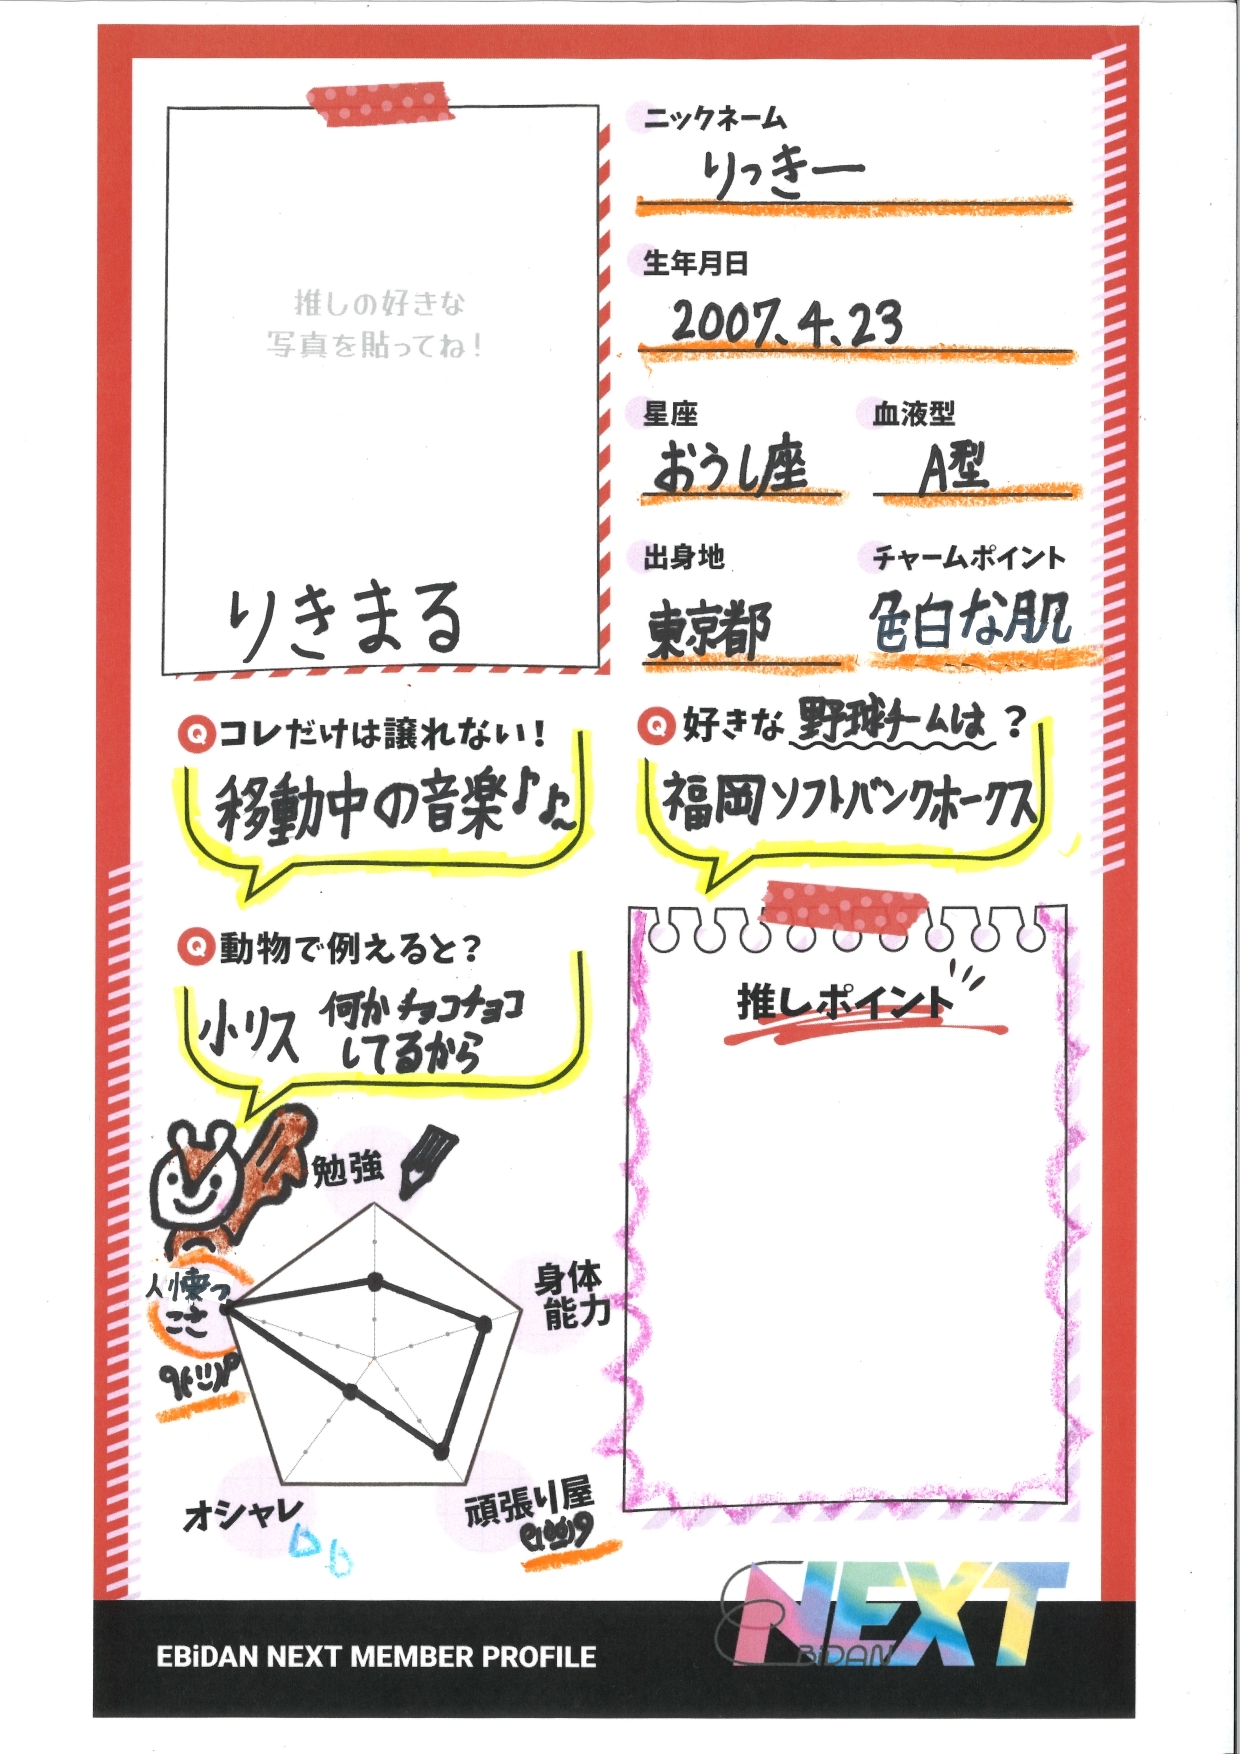 推しの好きな
写真を貼ってね！
りきまる
ニックネーム
りっきー
生年月日
2007.4.23
星座
おうし座
血液型
A型
出身地
東京都
チャームポイント
色白な肌
Q コレだけは譲れない！
移動中の音楽♪♪～
Q 好きな 野球チームは ？
福岡ソフトバンクホークス
Q 動物で例えると？
小リス 何かチョコチョコ
してるから
推しポイント
勉強
身体
能力
人懐っ
こさ
オシャレ
頑張り屋
NEXT
EBiDAN
EBiDAN NEXT MEMBER PROFILE